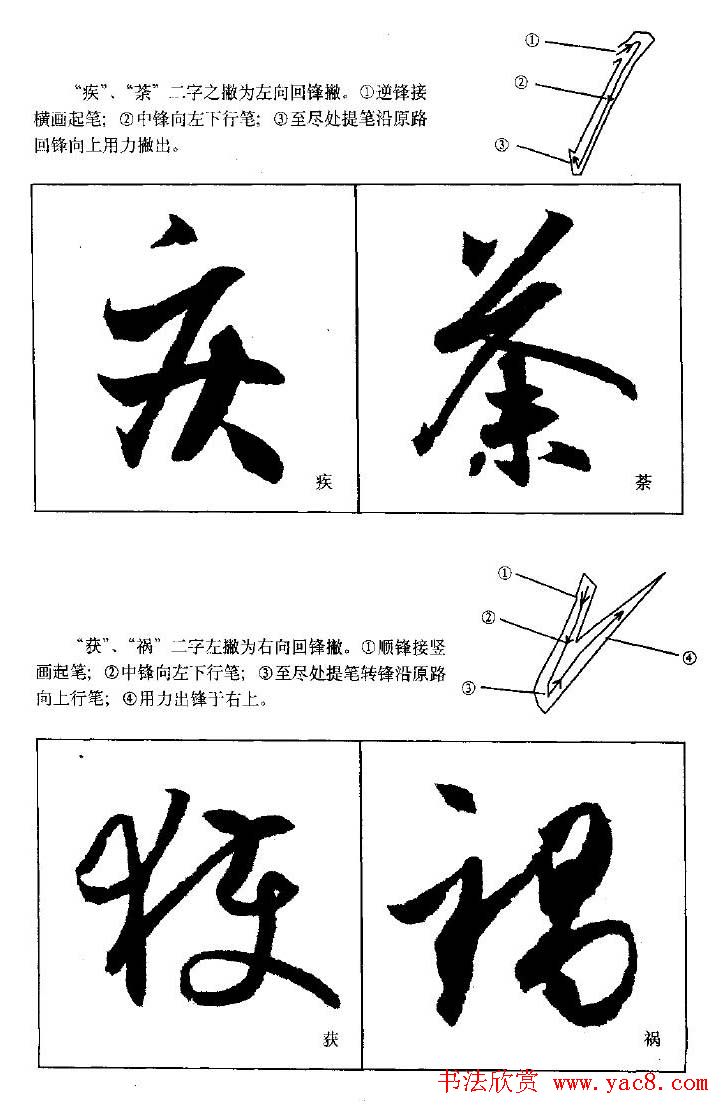 “疾”、“荼”二字之撇为左向回锋撇。①逆锋接
横画起笔；②中锋向左下行笔；③至尽处提笔沿原路
回锋向上用力撇出。
①
②
③
疾 荼
疾 荼
“获”、“祸”二字左撇为右向回锋撇。①顺锋接竖
画起笔；②中锋向左下行笔；③至尽处提笔转锋沿原路
向上行笔；④用力出锋于右上。
①
②
③
④
獲 禍
获 祸
书法欣赏 www.yac8.com